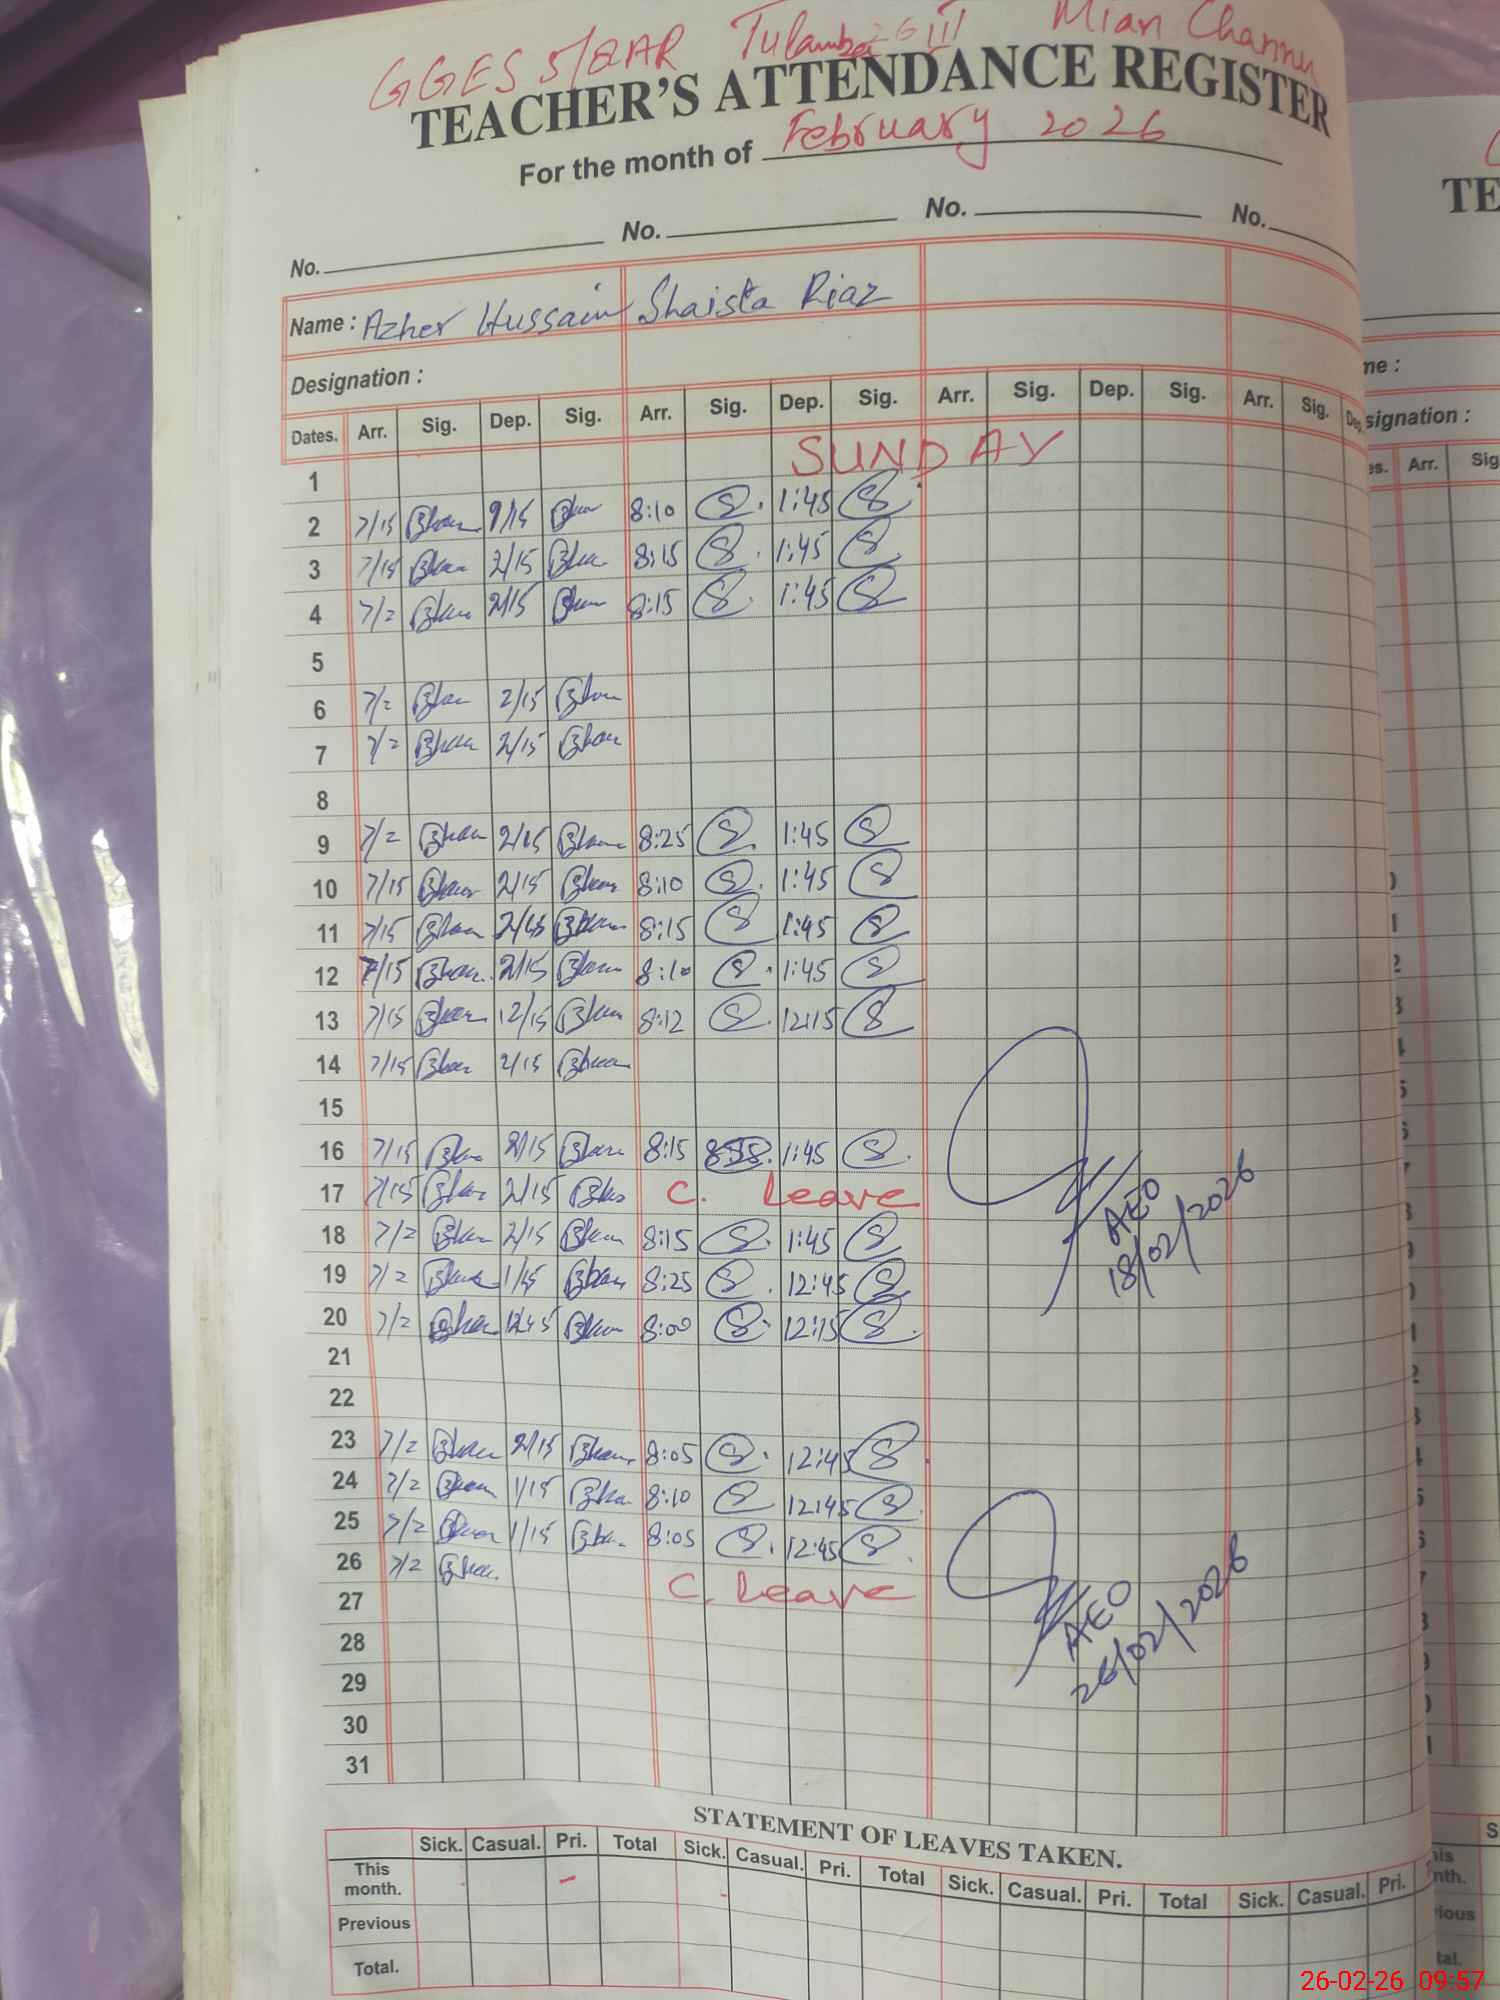 GGES 5/8AR Tulamba III Mian Channu
TEACHER'S ATTENDANCE REGISTER
For the month of February 2026
No. No. No. No.
Name : Azher Hussain Shaista Riaz
Designation :
Dates. Arr. Sig. Dep. Sig. Arr. Sig. Dep. Sig. Arr. Sig. Dep. Sig. Arr. Sig. Dep.
1 SUNDAY
2 7/15 8:10 1:45
3 7/15 2/15 8:15 1:45
4 7/2 2/15 8:15 1:45
5
6 7/2 2/15
7 7/2 2/15
8
9 7/2 2/15 8:25 1:45
10 7/15 2/15 8:10 1:45
11 7/15 8:15 1:45
12 7/15 2/15 8:10 1:45
13 7/15 12/15 8:12 12:15
14 7/15 2/15
15
16 7/15 2/15 8:15 1:45
17 7/15 2/15 C. Leave
18 7/2 2/15 8:15 1:45
19 7/2 8:25 12:45
20 7/2 8:00 12:15
21
22
23 7/2 2/15 8:05 12:45
24 7/2 1/15 8:10 12:45
25 7/2 1/15 8:05 12:45
26 7/2 C. Leave
27
28
29
30
31
AEO
18/02/2026
AEO
26/02/2026
STATEMENT OF LEAVES TAKEN.
Sick. Casual. Pri. Total Sick. Casual. Pri. Total Sick. Casual. Pri. Total Sick. Casual. Pri.
This month.
Previous
Total.
TE
me :
signation :
es. Arr. Sig
26-02-26 09:57